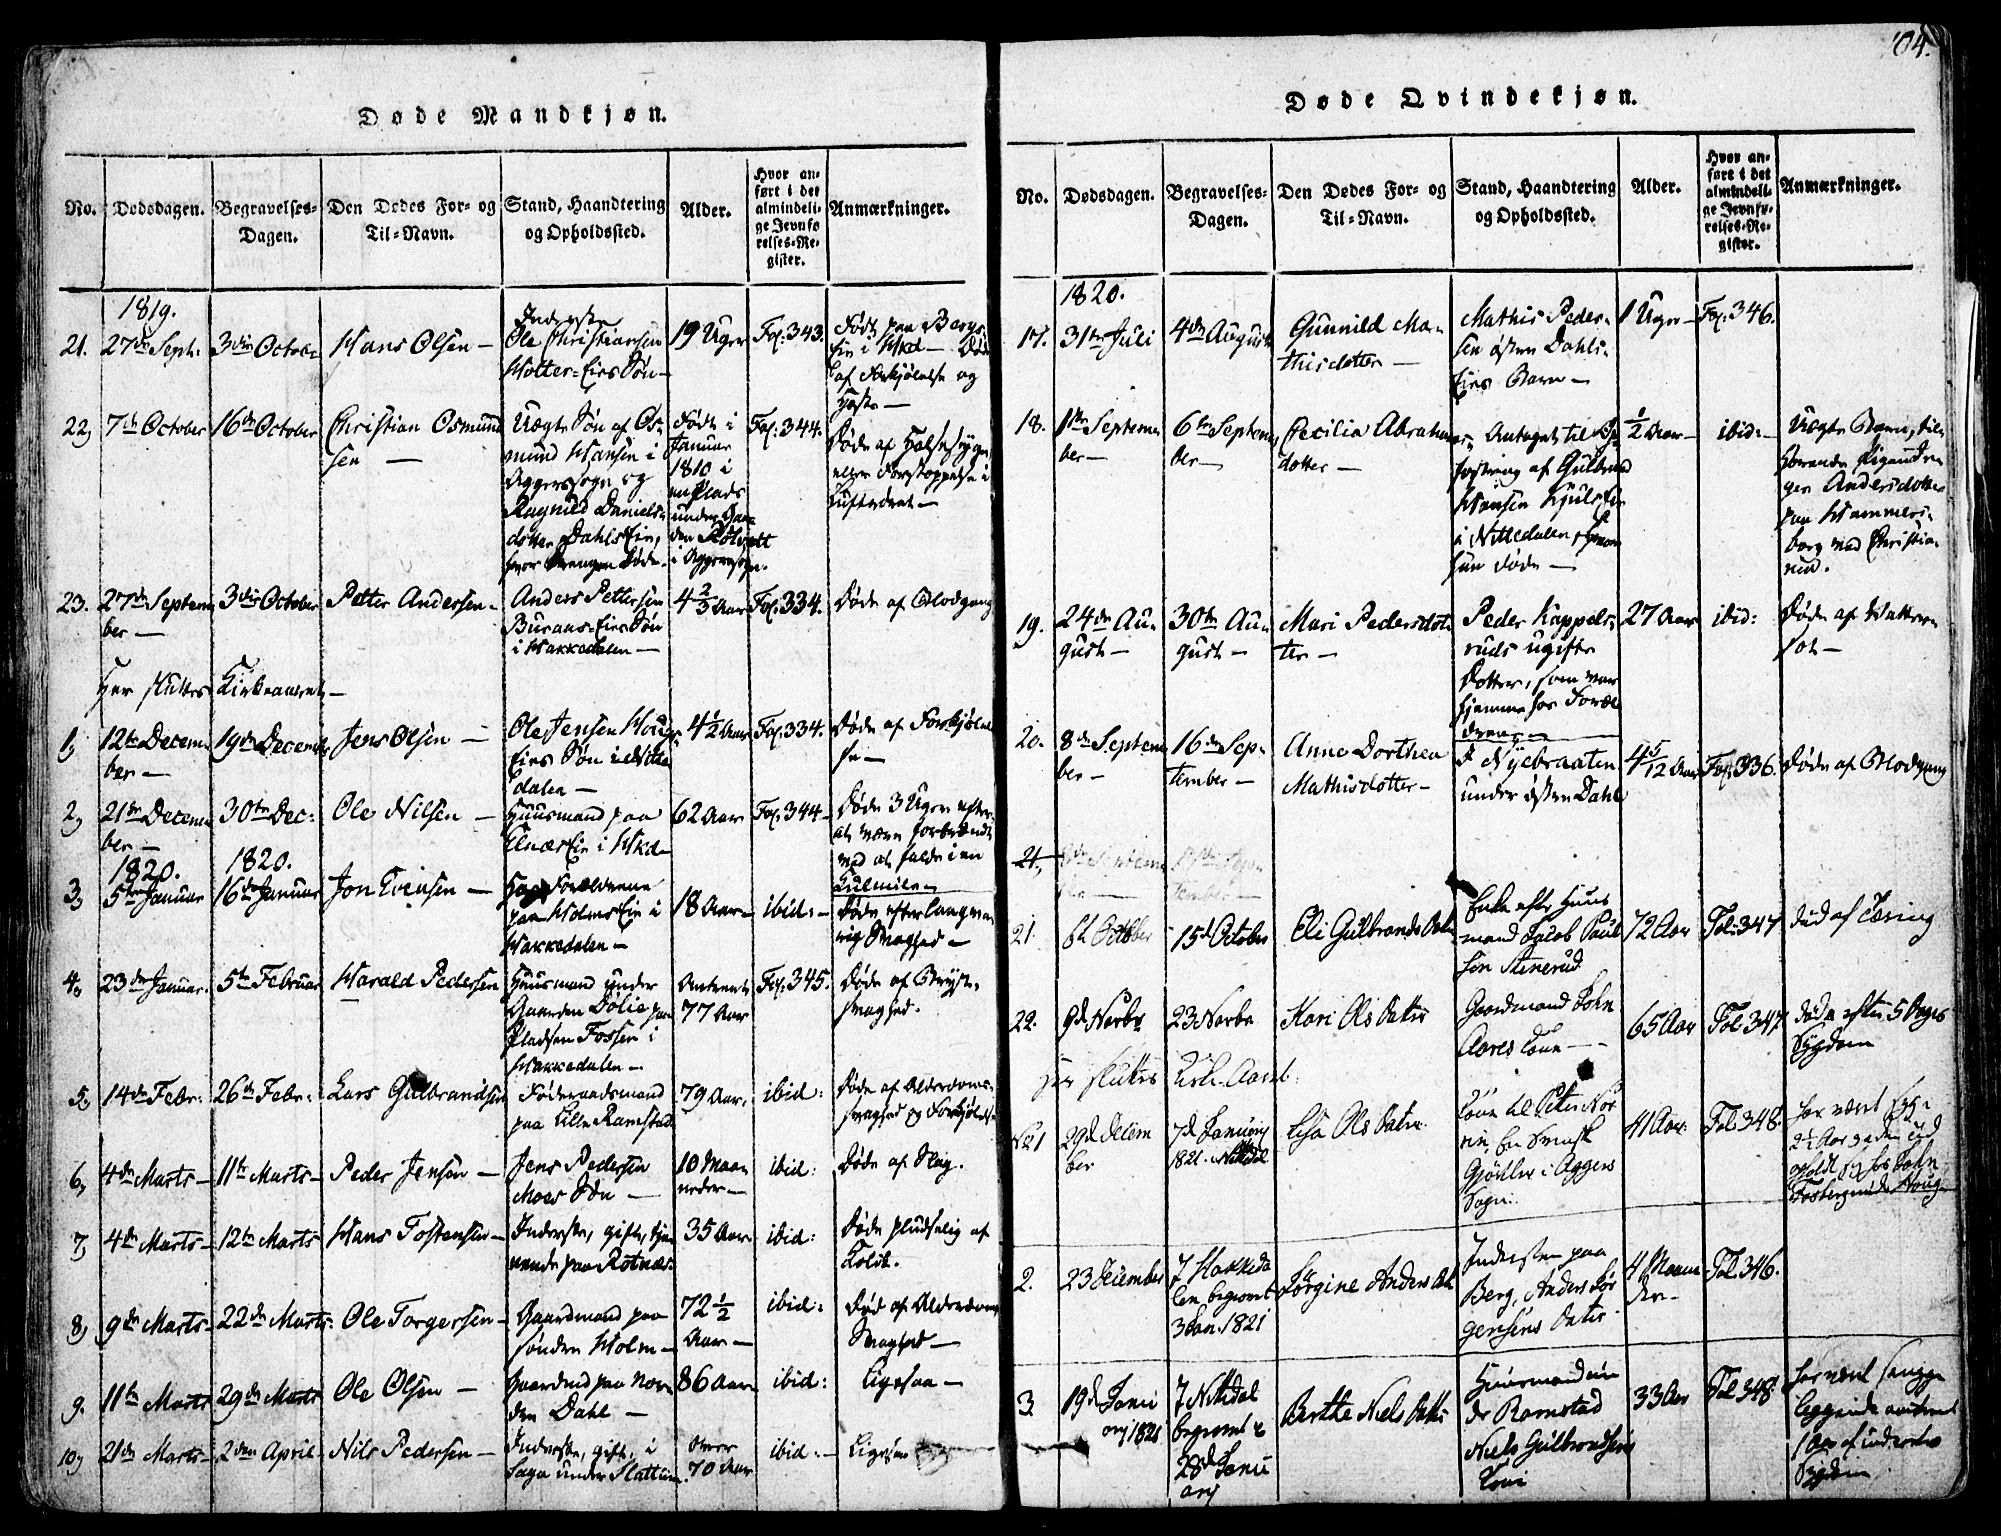 104.
Døde Mandkjøn.
No.
Dødsdagen.
Begravelses-
Dagen.
Den Dødes For- og
Til-Navn.
Stand, Haandtering
og Opholdssted.
Alder.
Hvor an-
ført i det
almindeli-
ge Jevnfø-
relses-Re-
gister.
Anmærkninger.
1819.
21. 27de Septr. 3die October Hans Olsen —
Inderste
Ole Christiansen
Holter-Eies Søn —
19 Uger
Fol: 343.
Født paa Bergs-
Eie i Hkd — Døde
af Forkjølelse og
Hoste —
22, 7de October 16de October Christian Osmund
sen —
Uægte Søn af Os-
mund Hansen i
Aggers sogn og
Ragnild Daniels-
dotter Dahls Eie,
hvor Drengen døde.
Født i
Januar
1810 i
en Plads
under Gaar
den
i Aggers sogn.
Fol: 344.
Døde af Halsesyge
eller Forstoppelse i
Luftrøret —
23. 27de Septem
ber —
3die October Petter Andersen —
Anders Pettersen
Buraas-Eies Søn
i Hakkedalen —
4 2/3 Aar
Fol: 334.
Døde af Blodgang
Her sluttes Kirkeaaret —
1, 12te Decem
ber —
19de December Jens Olsen —
Ole Jensen Houg-
Eies Søn i Nitte
dalen —
4 1/2 Aar
Fol: 334.
Døde af Forkjølel
se —
2, 21de Decem
ber —
30te Dec: Ole Nilsen —
Huusmand paa
Elnæs Eie i Hkd —
62 Aar
Fol: 344 —
Døde 3 Uger efter
at være forbrændt
ved at falde i en
Kulmile —
1820. 1820.
3, 5te Januar 16de Januar Jon Evensen —
Hos Forældrene
paa Holms Eie i
Hakkedalen —
18 Aar —
ibid: —
Døde efter langva
rig Svaghed —
4, 23de Januar. 5te Februar Harald Pedersen
Huusmand under
Gaarden Dølie paa
Pladsen Fossen i
Hakkedalen —
Omtrent
77 Aar
Fol: 345.
Døde af Bryst-
svaghed.
5, 14de Febr: 26de Febr: Lars Gulbrandsen
Føderaadsmand
paa Lille Ramstad
79 Aar,
ibid:
Døde af Alderdoms-
svaghed og Forkjølelse
6, 4de Marts — 11te Marts — Peder Jensen —
Jens Pedersen
Moes Søn —
10 Maa
neder —
ibid:
Døde af Slag.
7, 4de Marts — 12te Marts Hans Tostensen —
Inderste, gift, tje
nende paa Rotnæs.
35 Aar
ibid:
Døde pludselig af
Koldb.
8, 9de Marts — 22de Marts: Ole Torgersen —
Gaardmand paa
søndre Holm —
72 1/2
Aar —
ibid:
Død af Alderdoms
Svaghed —
9. 11te Marts 29de Marts Ole Olsen —
Gaardmd paa nor
dre Dahl —
86 Aar
ibid:
Ligesaa —
10, 21de Marts — 2den April — Nils Pedersen —
Inderste, gift, i
Saga under Slattum
Over
70 Aar
ibid: —
Ligesaa
Døde Qvindekjøn.
No.
Dødsdagen.
Begravelses-
Dagen.
Den Dødes For- og
Til-Navn.
Stand, Haandtering
og Opholdssted.
Alder.
Hvor an-
ført i det
almindeli-
ge Jevnfø-
relses-Re-
gister.
Anmærkninger.
1820.
17. 31te Juli 4de August Gunnild Ma-
thisdotter —
Mathis Peder-
sen østre Dahls-
Eies Barn —
1 Uge —
Fol: 346.
18. 1ste Septem
ber —
6te Septem
ber —
Cecilia Abrahams
dotter —
Antaget til Op
fostring af Gulbrand
Hansen Kjuls Eie
i Nittedalen, hvor
hun døde —
1/2 Aar —
ibid: —
Uægte Barn, til
hørende Pigen In
ger Andersdotter
paa Hammers-
borg ved Christia
nia.
19. 24de Au-
gust —
30te Au-
gust —
Mari Pedersdot-
ter —
Peder Kappels-
ruds ugifte
Dotter, som var
hjemme hos Foræl
drene —
27 Aar
ibid:
Døde afВатter
sot —
20. 8de Septem
ber —
16de Sep-
tember —
Anne Dorthea
Mathisdotter —
I Nyebraaten
under østre Dahl
4 5/12 Aar
Fol: 336.
Døde af Blodgang
21,
21. 6te October 15de October Eli Gulbrands Datter
Enke efter Huus
mand Jacob Paul
sen Stenerud
72 Aar
Fol: 347
død af Tæring
22. 9de Novbr 23 Novbr Kari Ols Datter
Gaardmand John
Aares Kone —
65 Aar
Fol 347
døde efter 5 Dages
Sygdom
Her sluttes Kirke-Aaret.
No 1 29de Decem
ber
7de Januarj
1821. Nittedal
Lisa Ols Datter
Kone til Peter Nor
, en Svensk
Gjørtler i Aggers
Sogn.
41 Aar.
Fol 348.
har været syg i
2 1/2 Aar
opholdt sig hos John
2. 23 December
7 Hakkeda
len begravet
3 Jan. 1821
Jørgine Anders Datter
Indersten paa
Berg, Anders Jør
gensens Datter
4 Maane
der —
Fol 346.
3. 19de Janu
arj 1821
7 Nittdal
begravet
28de Janu
arj
Berthe Niels Datter
Huusmand un
der Ramstad
Niels Gulbrandsens
Kone
33 Aar
Fol 348.
har været senge
liggende omtrent
1 Aar af indvortes
Sygdom